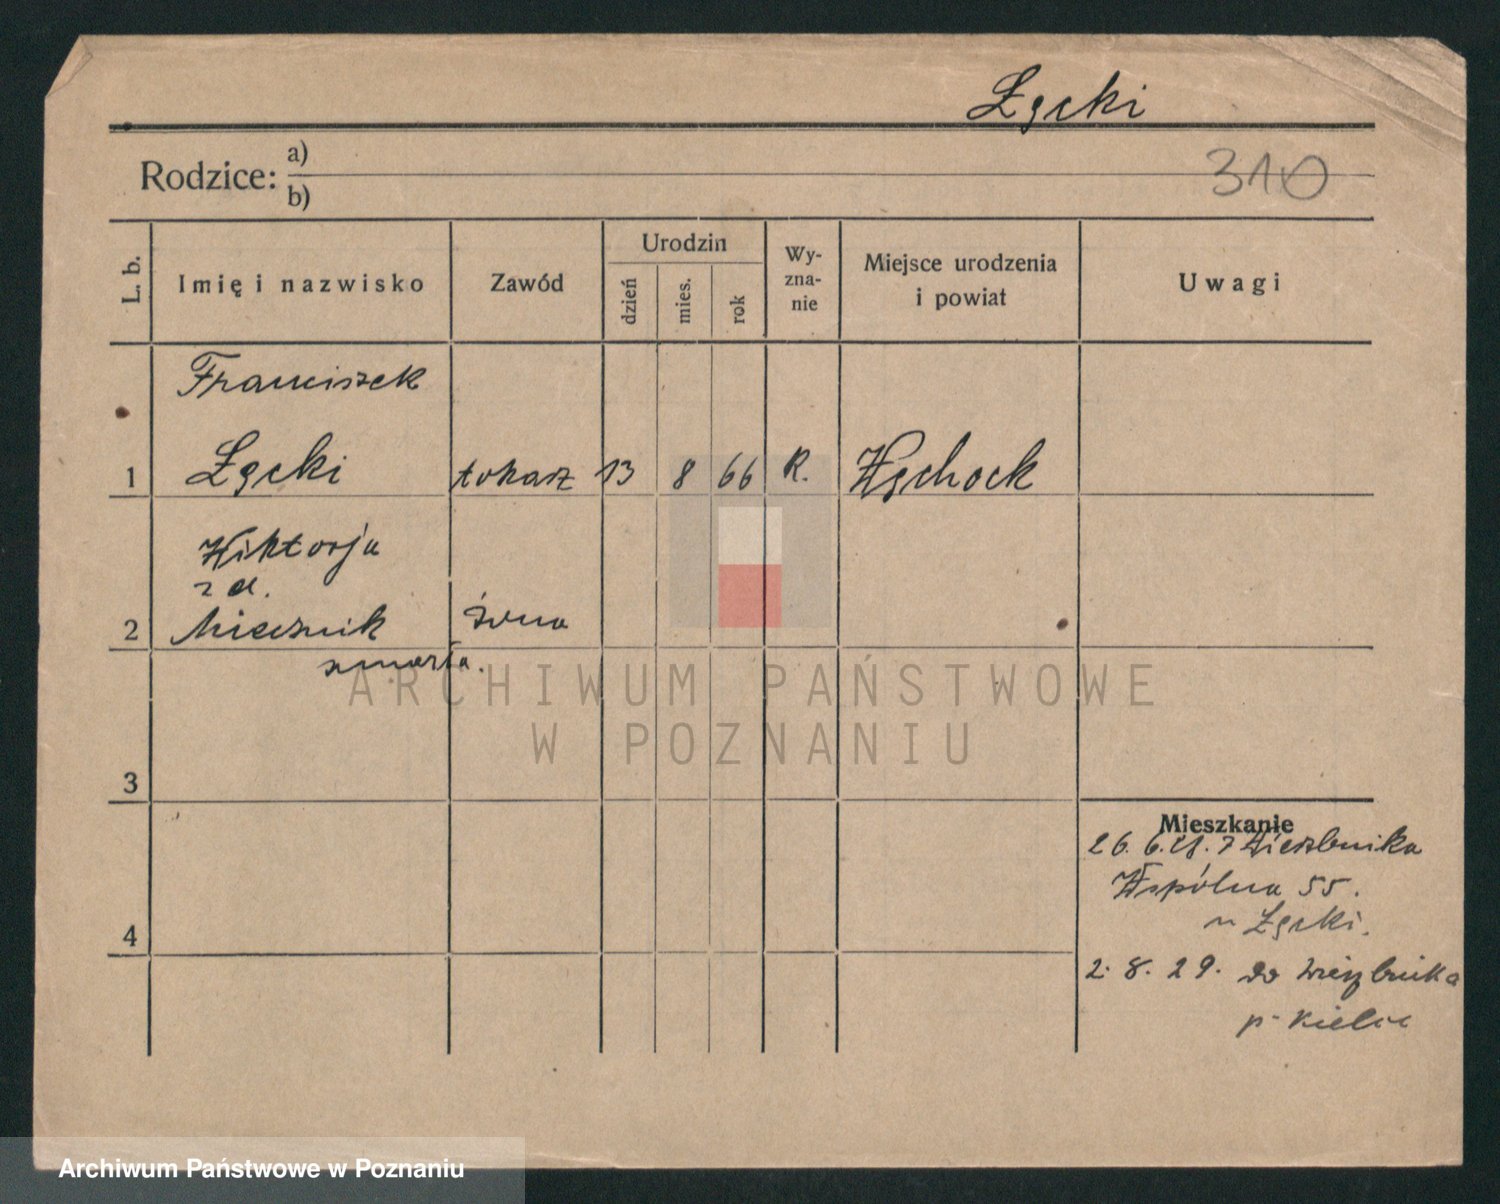 Łącki
Rodzice: a)
b)
310
L. b.
Imię i nazwisko
Zawód
Urodzin
dzień
mies.
rok
Wy-
zna-
nie
Miejsce urodzenia
i powiat
Uwagi
Franciszek
1 Łącki tokarz 13 8 66 R. Wąchock
Wiktorja
z d.
2 Miecznik żona
zmarła.
3
Mieszkanie
26. 6. 28. z Wierzbnika
Wspólna 55.
u Łącki.
4
2. 8. 29. do Wierzbnika
p. Kielce
ARCHIWUM PAŃSTWOWE
W POZNANIU
Archiwum Państwowe w Poznaniu